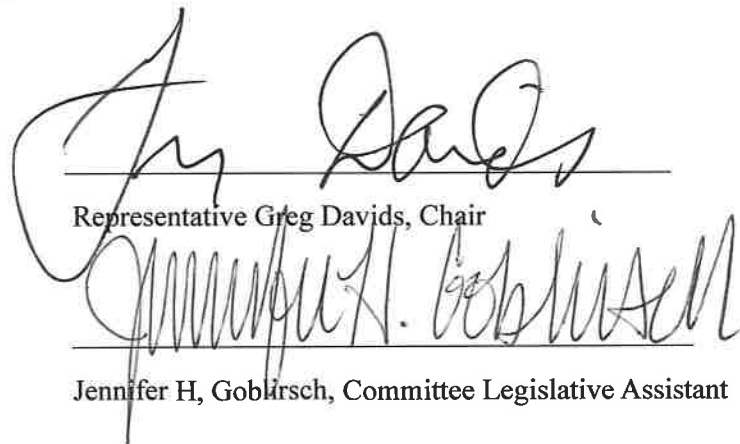 Greg Davids
Representative Greg Davids, Chair
Jennifer H. Goblirsch
Jennifer H, Goblirsch, Committee Legislative Assistant